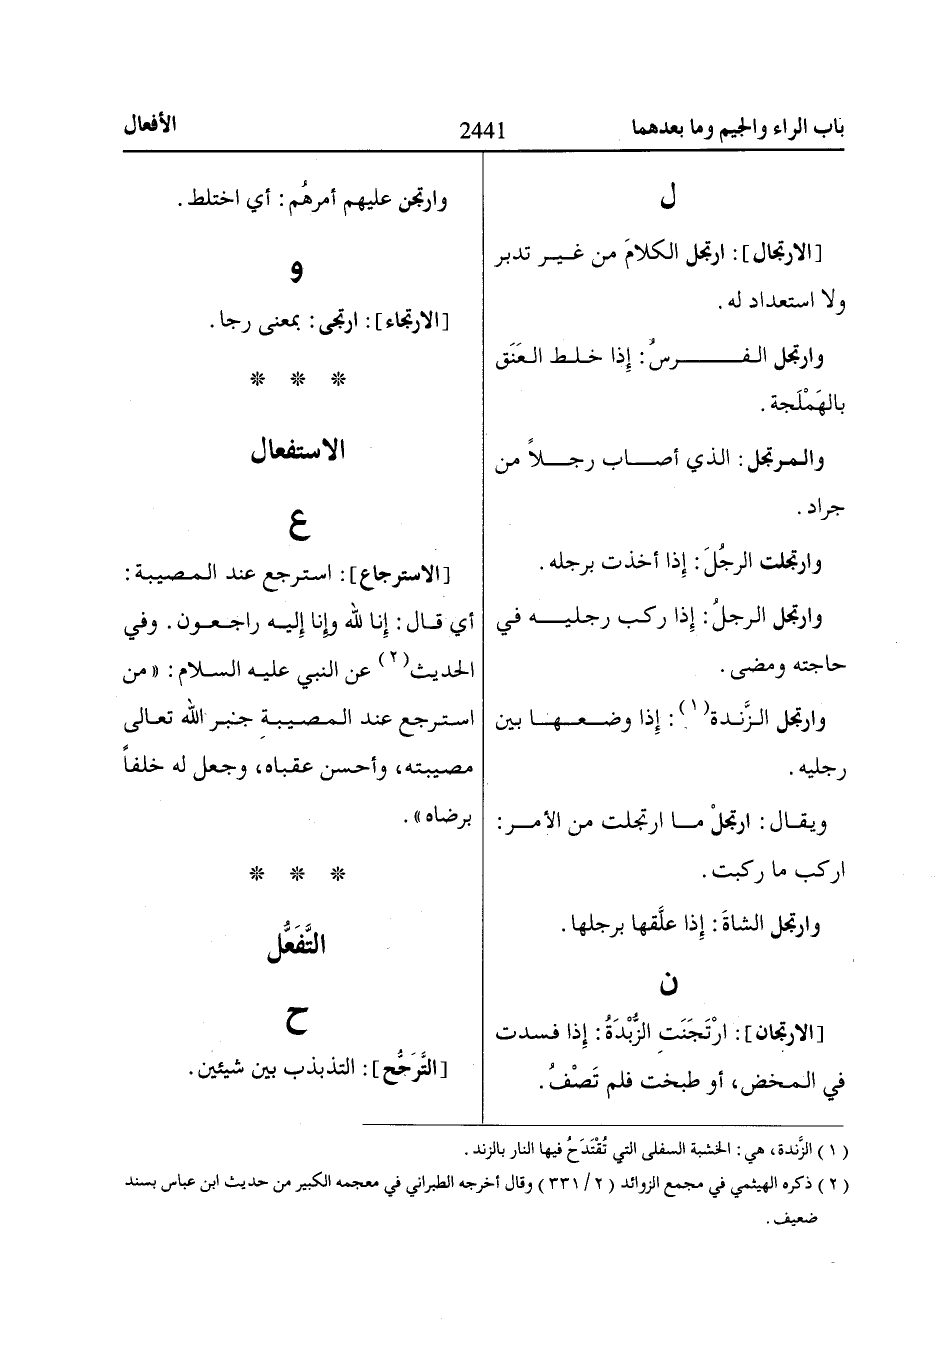 باب الراء والجيم وما بعدهما 2441 الأفعال
ل
[الارتجال]: ارتجل الكلامَ من غير تدبر
ولا استعداد له.
وارتجل الفرسُ: إذا خلط العَنَق
بالهَمْلَجة.
والمرتجل: الذي أصاب رجلاً من
جراد.
وارتجلت الرجُلَ: إذا أخذت برجله.
وارتجل الرجلُ: إذا ركب رجليه في
حاجته ومضى.
وارتجل الزَّندة(١): إذا وضعها بين
رجليه.
ويقال: ارتجلْ ما ارتجلت من الأمر:
اركب ما ركبت.
وارتجل الشاةَ: إذا علَّقها برجلها.
ن
[الارتجان]: ارْتَجَنَت الزُّبْدَةُ: إذا فسدت
في المخض، أو طبخت فلم تَصْفُ.
وارتجن عليهم أمرهُم: أي اختلط.
و
[الارتجاء]: ارتجى: بمعنى رجا.
* * *
الاستفعال
ع
[الاسترجاع]: استرجع عند المصيبة:
أي قال: إنا لله وإنا إليه راجعون. وفي
الحديث(٢) عن النبي عليه السلام: «من
استرجع عند المصيبة جنبر الله تعالى
مصيبته، وأحسن عقباه، وجعل له خلفاً
برضاه».
* * *
التَّفَعُّل
ح
[التَّرَجُّح]: التذبذب بين شيئين.
(١) الزَّندة، هي: الخشبة السفلى التي تُقْتَدَحُ فيها النار بالزند.
(٢) ذكره الهيثمي في مجمع الزوائد (٢/٣٣١) وقال أخرجه الطبراني في معجمه الكبير من حديث ابن عباس بسند
ضعيف.